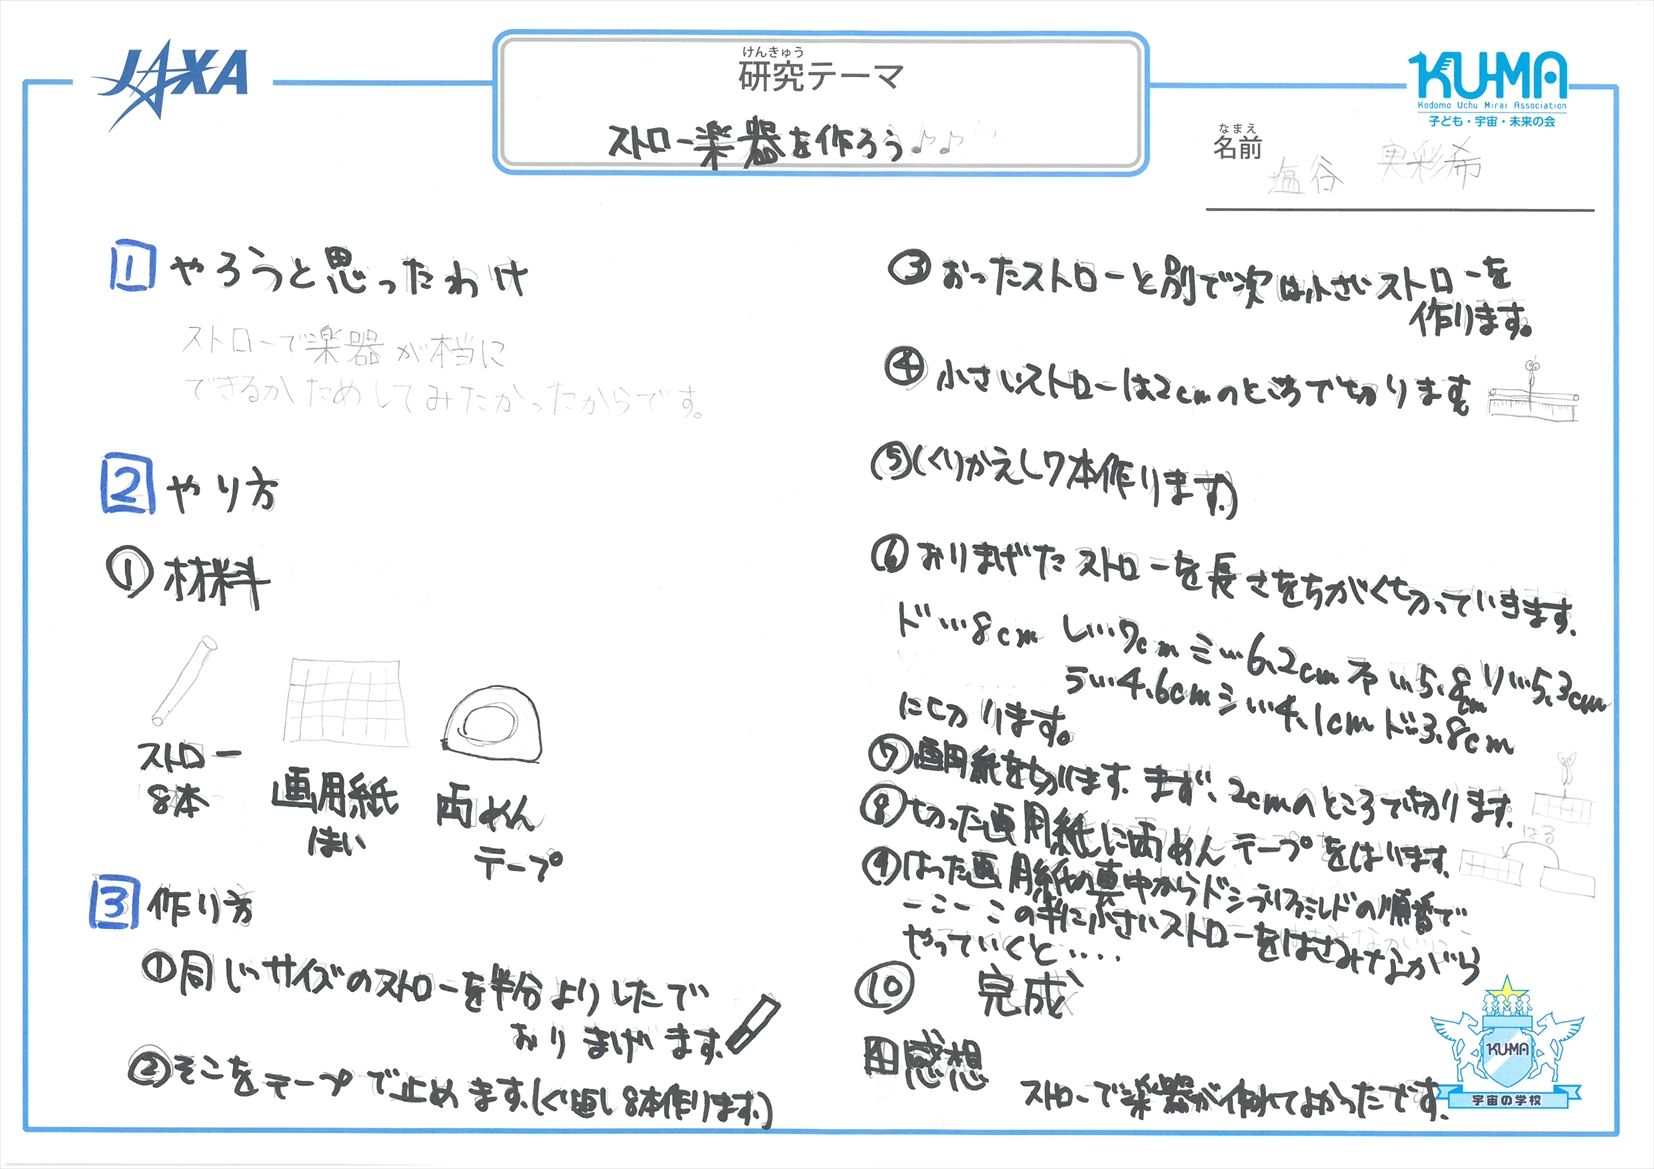 JAXA
けんきゅう
研究テーマ
ストロー楽器を作ろう♪♪
KU-MA
Kodomo Uchu Mirai Association
子ども・宇宙・未来の会
なまえ
名前
塩谷 実彩希
1 やろうと思ったわけ
ストローで楽器が本当に
できるかためしてみたかったからです。
2 やり方
① 材料
ストロー
8本
画用紙
はい
両めん
テープ
3 作り方
①同じサイズのストローを半分よりしたで
おりまげます。
②そこをテープで止めます。(くり返し8本作ります。)
③おったストローと別で次は小さいストローを
作ります。
④小さいストローは2cmのところで切ります。
⑤(くりかえし7本作ります。)
⑥おりまげたストローを長さをちがく切っていきます。
ド…8cm レ…7cm ミ…6.2cm ファ…5.8cm ソ…5.3cm
ラ…4.6cm シ…4.1cm ド3.8cm
に切ります。
⑦画用紙を切ります。まず、2cmのところで切ります。
⑧切った画用紙に両めんテープをはります。
はる
⑨はった画用紙の真中からドシラソファミレドの順番で
一こ一この半に小さいストローをはさみながら
やっていくと....
⑩ 完成
4 感想
ストローで楽器が作れてよかったです。
KU-MA
宇宙の学校